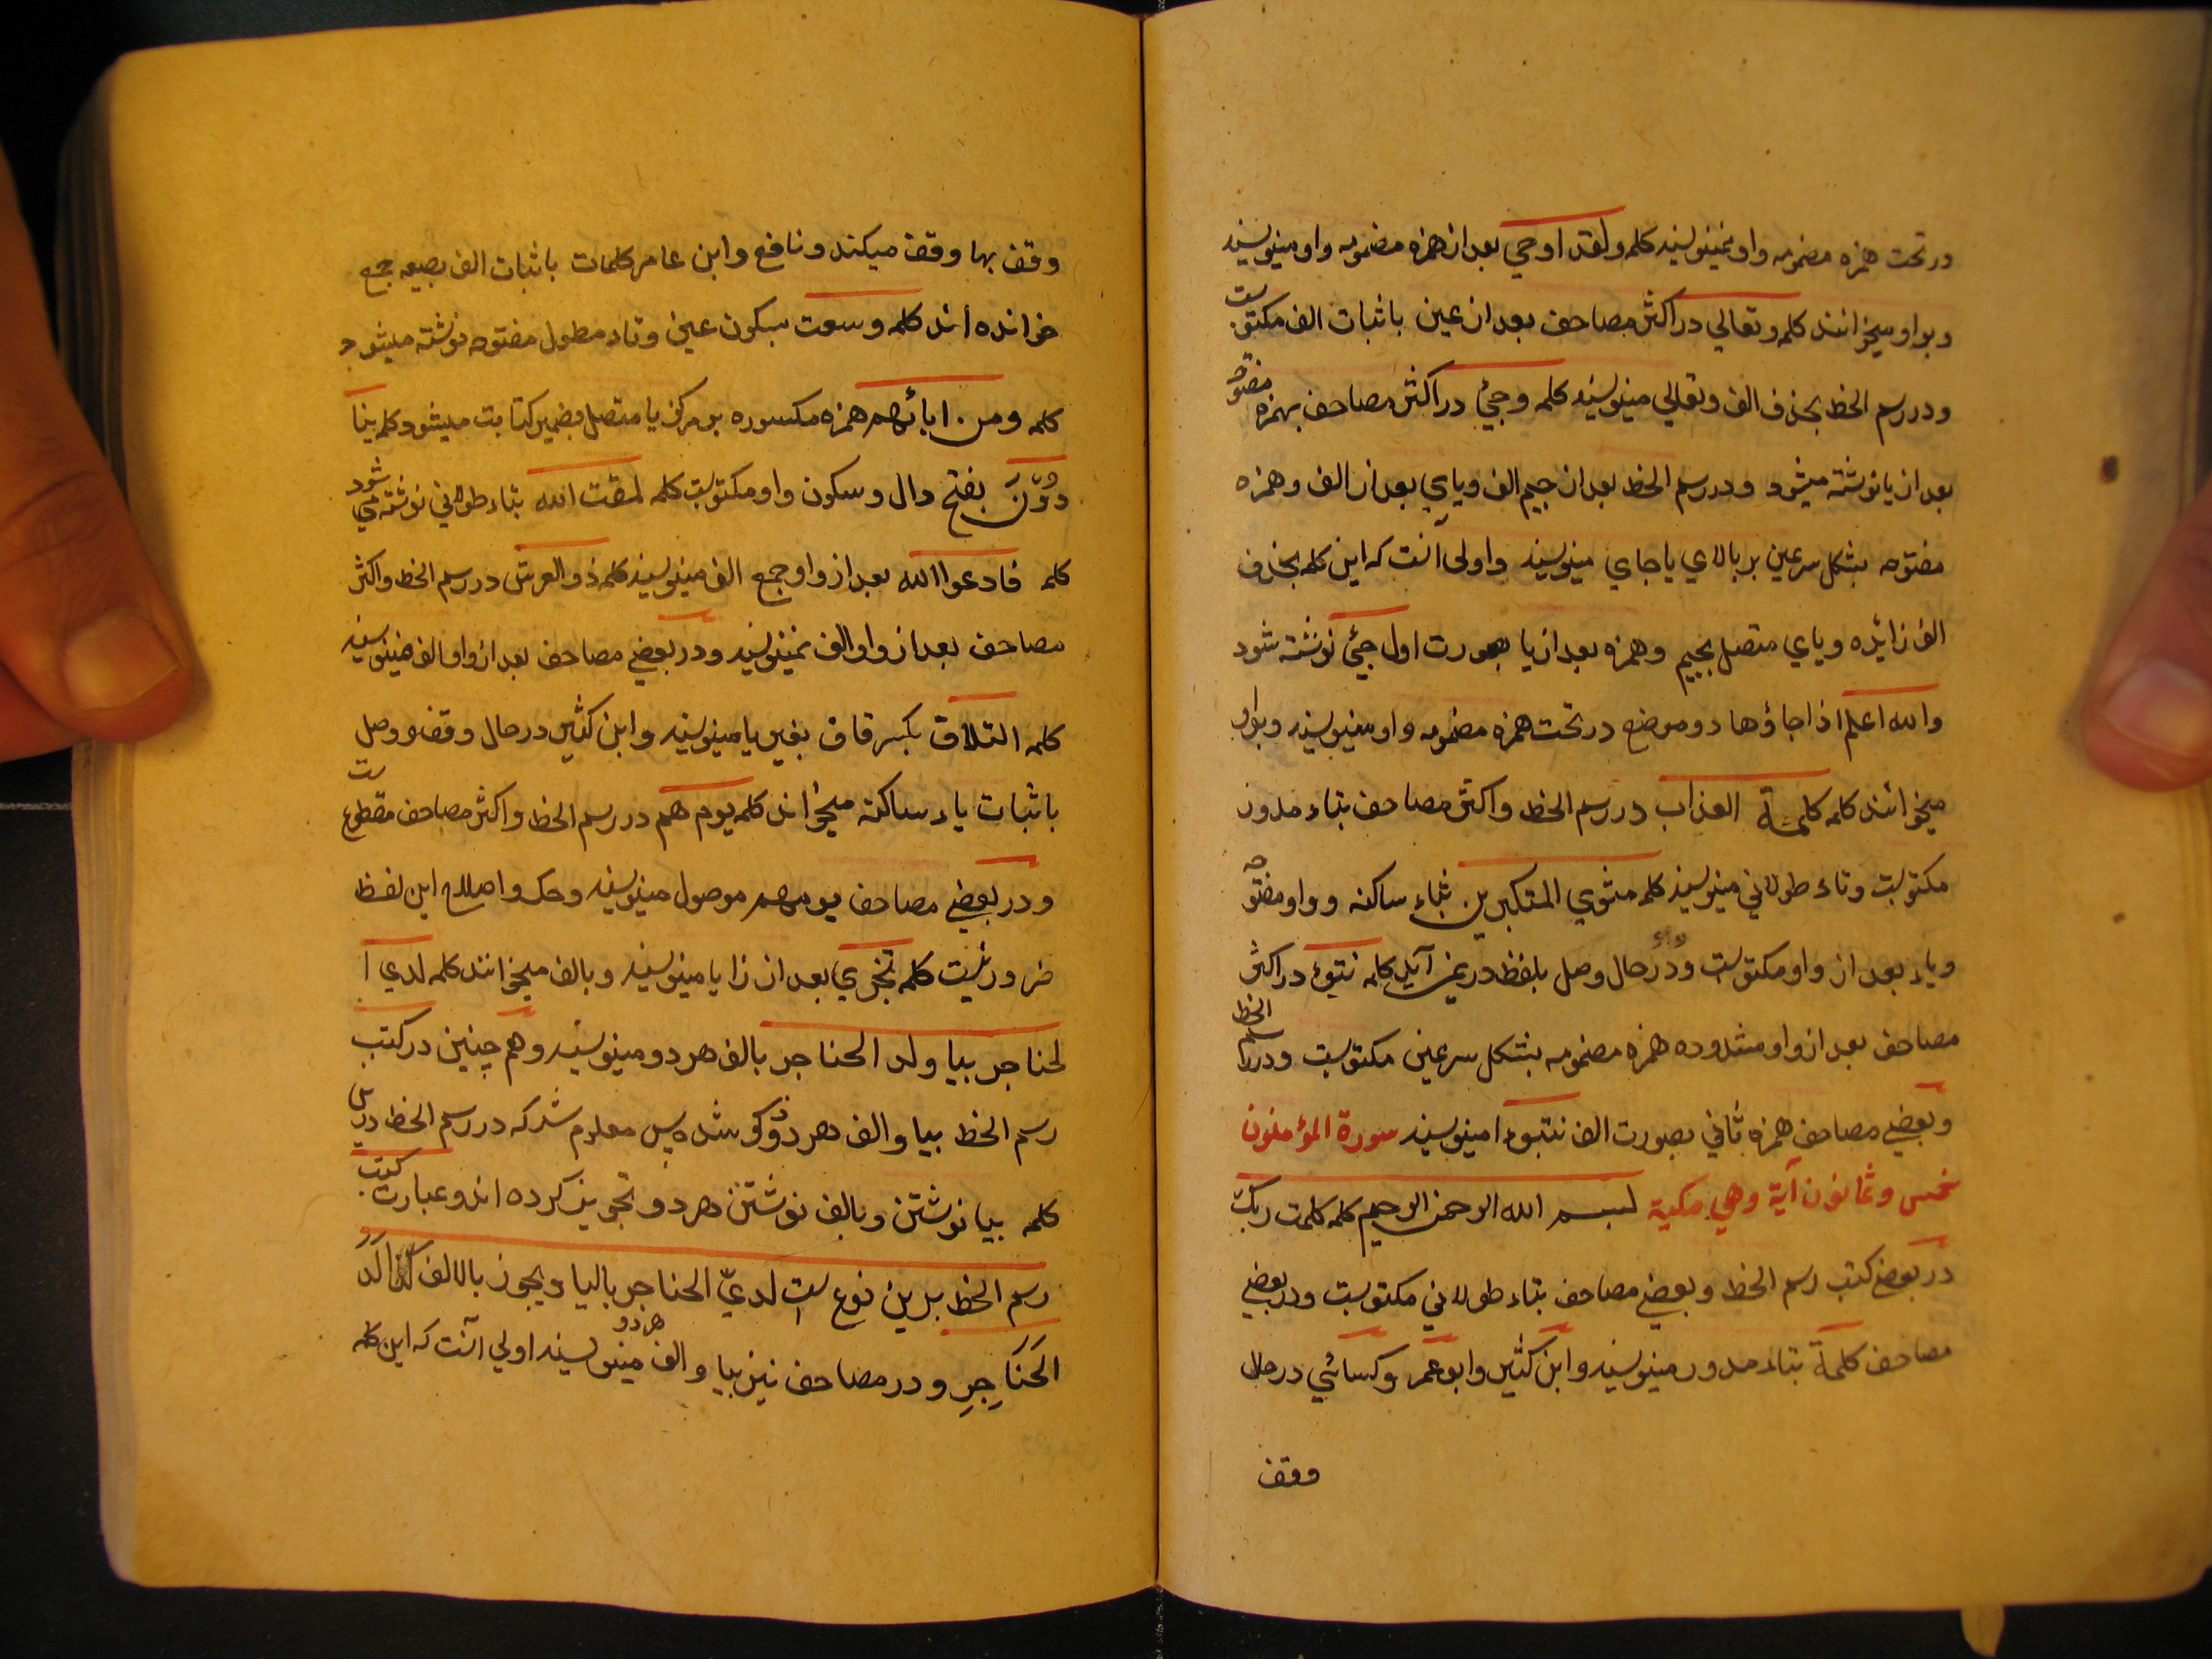 در تحت همزه مضمومه واو نمینویسند کلمه ولقد اوحي بعد از همزه مضمومه واو مینویسند
وبواو میخوانند کلمه وتعالي در اکثر مصاحف بعد از عین باثبات الف مکتوبست
ودر رسم الخط بحذف الف وتعالي مینویسند کلمه وجيء در اکثر مصاحف بهمزه مفتوحه
بعد از یا نوشته میشود ودر رسم الخط بعد از جیم الف ویاي بعد از الف وهمزه
مفتوحه بشکل سرعین بر بالاي یا جاي مینویسند واولی آنست که این کلمه بحذف
الف زائده ویاي متصل بجیم وهمزه بعد از یا بصورت اول جيء نوشته شود
والله اعلم اذا جاؤها دو موضع در تحت همزه مضمومه واو مینویسند وبواو
میخوانند کلمه کلمة العذاب در رسم الخط واکثر مصاحف بتاء مدور
مکتوبست وتاء طولاني مینویسند کلمه مثوي المتکبرین بثاء ساکنه وواو مفتوحه
ویاء بعد از واو مکتوبست ودر حال وصل بلفظ در نمي آید کلمه نتبوء در اکثر
مصاحف بعد از واو مشدوده همزه مضمومه بشکل سرعین مکتوبست ودر رسم الخط
وبعضي مصاحف همزه ثاني بصورت الف نتبوء ا مینویسند سورة المؤمنون
خمس وثمانون آیة وهي مکیة بسم الله الرحمن الرحیم کلمه کلمت ربک
در بعضي کتب رسم الخط وبعضي مصاحف بتاء طولاني مکتوبست ودر بعضي
مصاحف کلمة بتاء مدور مینویسند وابن کثیر وابو عمر وکسائي در حال
وقف
وقف بها وقف میکند ونافع وابن عامر کلمات باثبات الف بصیغه جمع
خوانده اند کلمه وسعت بسکون عین وتاء مطول مفتوحه نوشته میشود
کلمه ومن ابائهم همزه مکسوره بر مرکز یا متصل بضمیر کتابت میشود کلمه ینا
دون بفتح دال وسکون واو مکتوبست کلمه لمقت الله بتاء طولاني نوشته مي شود
کلمه فادعوا الله بعد از واو جمع الف مینویسند کلمه ذو العرش در رسم الخط واکثر
مصاحف بعد از واو الف نمینویسند ودر بعضي مصاحف بعد از واو الف مینویسند
کلمه التلاق بکسر قاف بغیر یا مینویسند وابن کثیر در حال وقف ووصل
باثبات یاء ساکنه میخواند کلمه یوم هم در رسم الخط واکثر مصاحف مقطوعست
ودر بعضي مصاحف یومهم موصول مینویسند وحک واصلاح این لفظ
ضرور نیست کلمه تجزي بعد از زا یا مینویسند وبالف میخوانند کلمه لدي ا
لحناجر بیا ولدا الحناجر بالف هر دو مینویسند وهم چنین در کتب
رسم الخط بیا والف هر دو مذکور شده پس معلوم شد که در رسم الخط درین
کلمه بیا نوشتن وبالف نوشتن هر دو تجویز کرده اند وعبارت کتب
رسم الخط برین نوع است لدي الحناجر بالیاء ویجوز بالالف لدا
الحناجر ودر مصاحف نیز بیا والف هر دو مینویسند اولي آنست که این کلمه